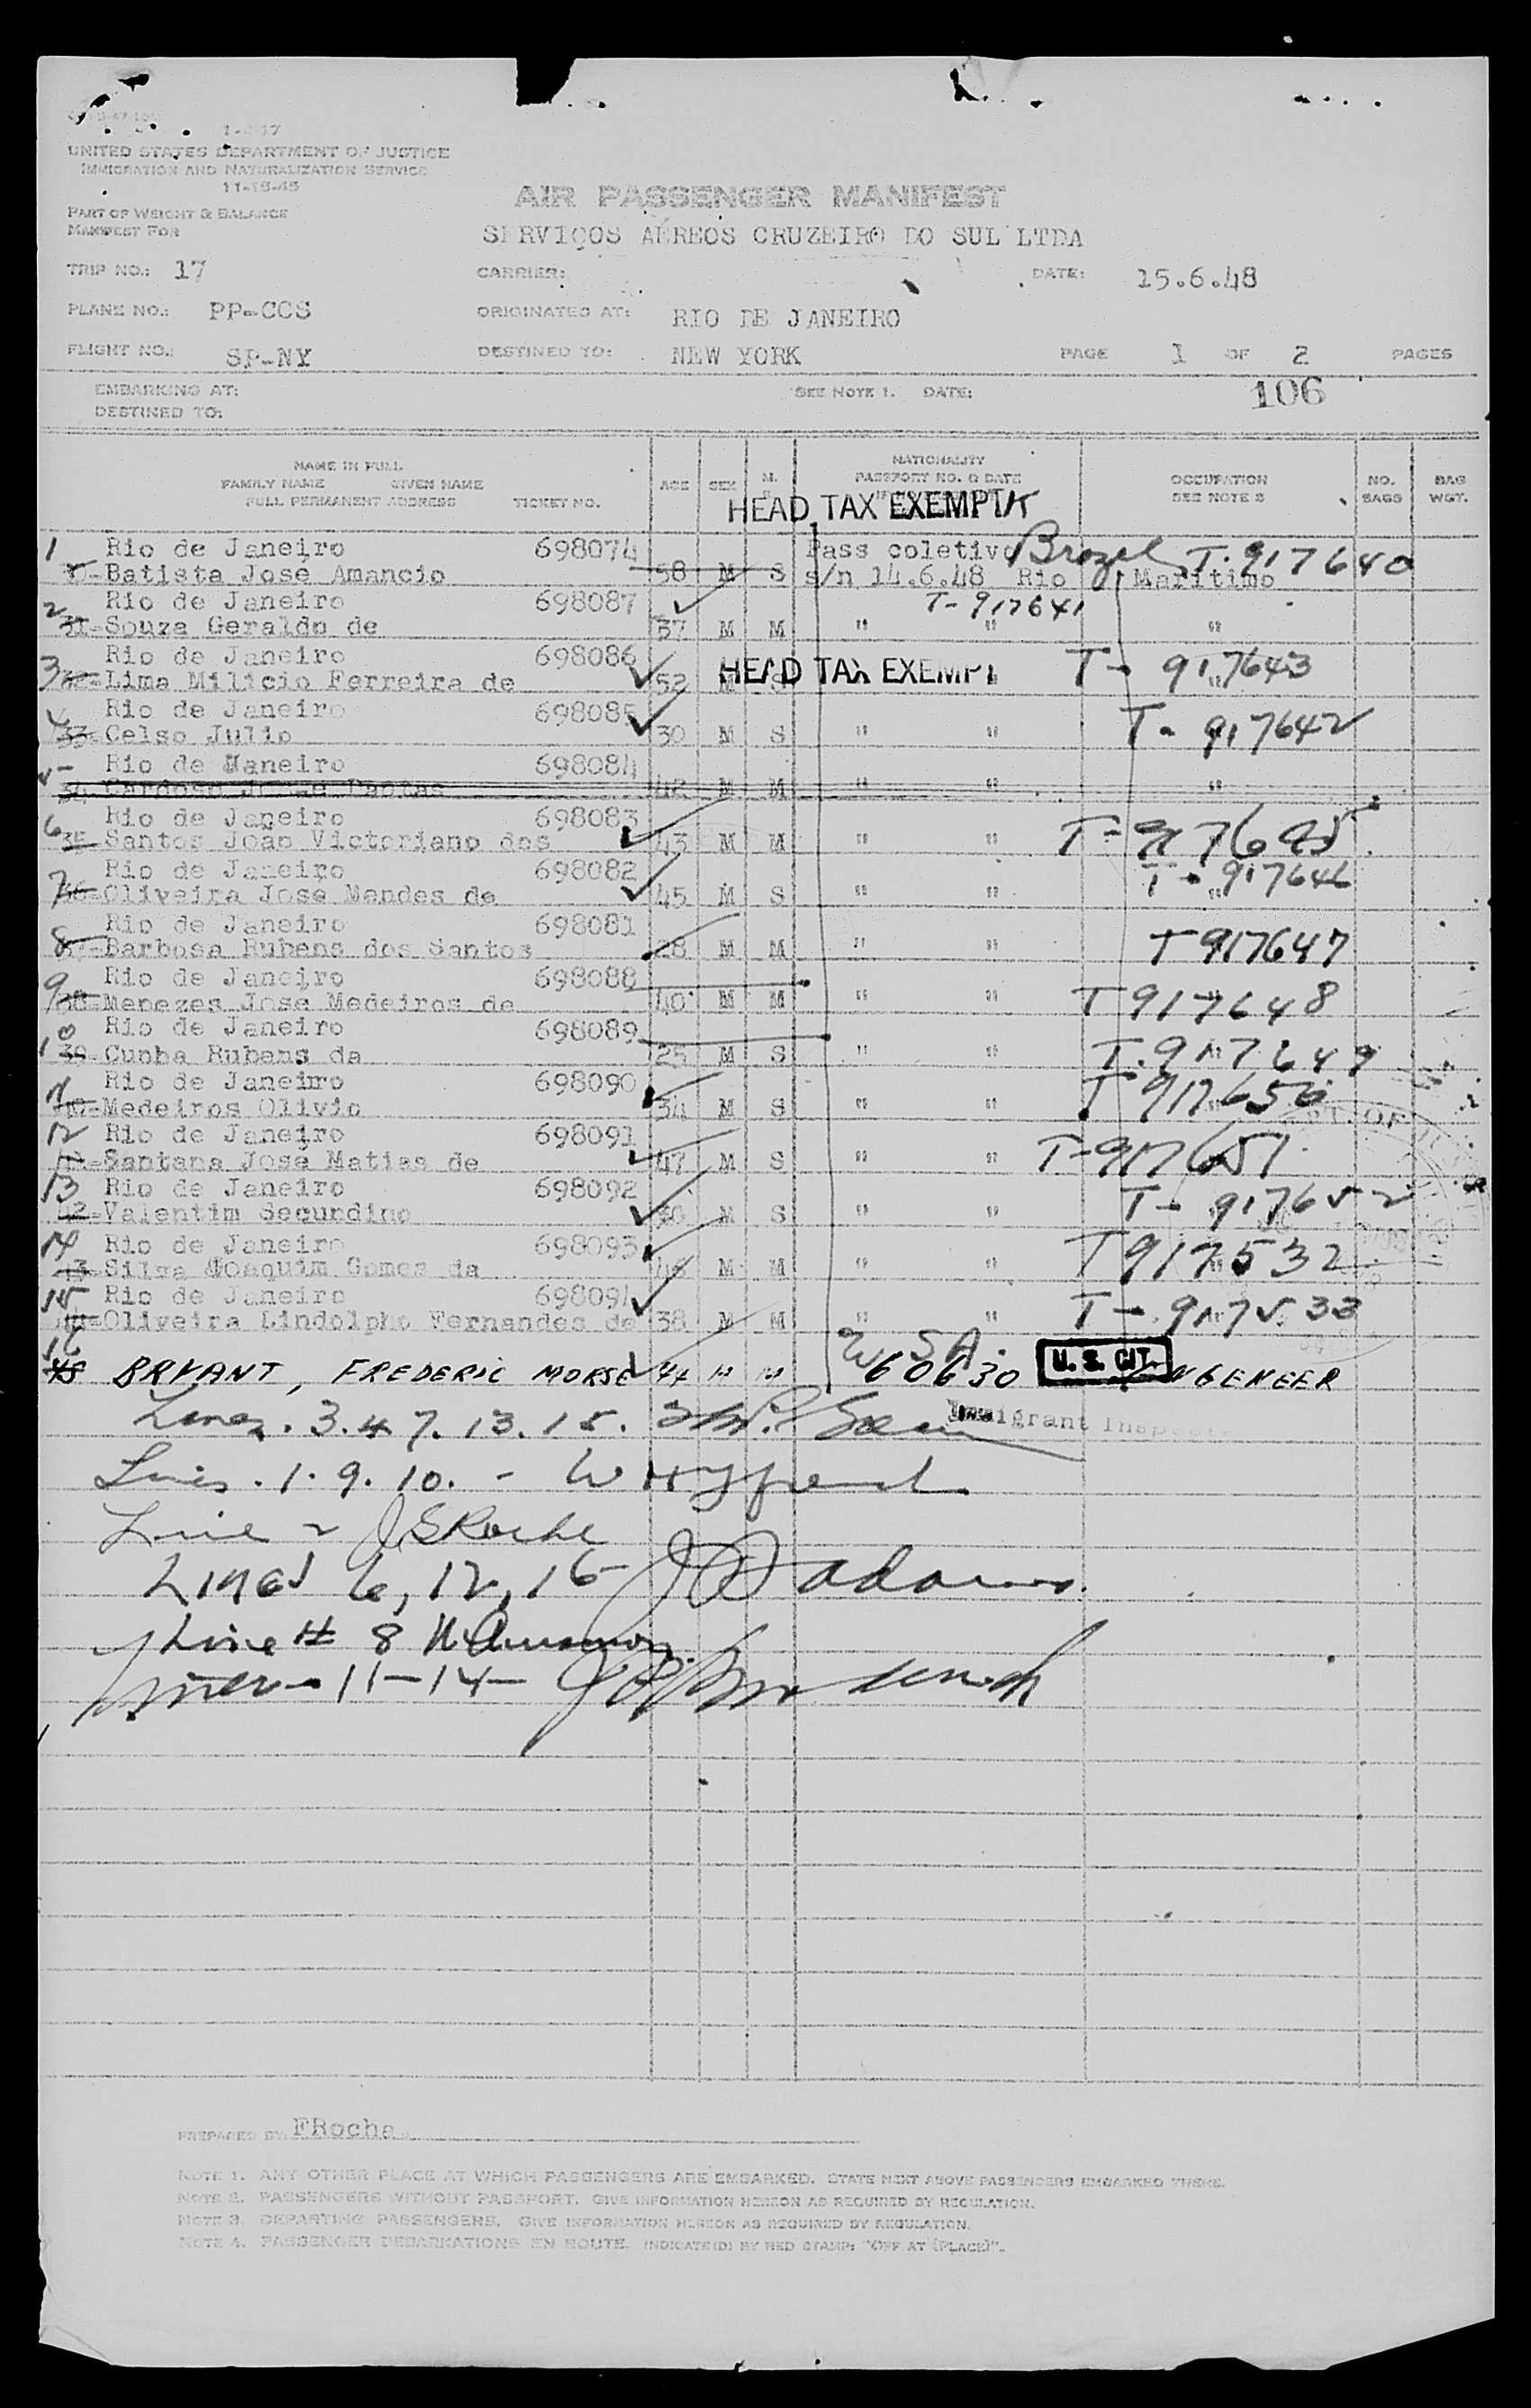 1-457
UNITED STATES DEPARTMENT OF JUSTICE
IMMIGRATION AND NATURALIZATION SERVICE
11-15-45
AIR PASSENGER MANIFEST
PART OF WEIGHT & BALANCE
MANIFEST FOR
SERVIÇOS AÉREOS CRUZEIRO DO SUL LTDA
TRIP NO.: 17 CARRIER: DATE: 15.6.48
PLANE NO.: PP-CCS ORIGINATED AT: RIO DE JANEIRO
FLIGHT NO.: SP-NY DESTINED TO: NEW YORK PAGE 1 OF 2 PAGES
EMBARKING AT: SEE NOTE 1. DATE: 106
DESTINED TO:
NAME IN FULL
FAMILY NAME GIVEN NAME
FULL PERMANENT ADDRESS TICKET NO. AGE SEX M. NATIONALITY PASSPORT NO. & DATE OCCUPATION SEE NOTE 2 NO. BAGS BAG WGT.
HEAD TAX EXEMPT
1 Rio de Janeiro 698074 Pass coletivo Brazil T-917640
Batista José Amancio 58 M S s/n 14.6.48 Rio Maritimo
2 Rio de Janeiro 698087 T-917641
31-Souza Geraldo de 37 M M " " "
3 Rio de Janeiro 698086 HEAD TAX EXEMPT T-917643
Lima Milicio Ferreira de 52 M S " "
4 Rio de Janeiro 698085 T-917642
33-Celso Julio 30 M S " "
5 Rio de Janeiro 698084
34-Cardoso Jorge Dantas 42 M M " " "
6 Rio de Janeiro 698083
35-Santos João Victoriano dos 43 M M " " T-917645
7 Rio de Janeiro 698082 T-917646
36-Oliveira José Mendes de 45 M S " " "
8 Rio de Janeiro 698081
Barbosa Rubens dos Santos 28 M M " " T917647
9 Rio de Janeiro 698088
38-Menezes José Medeiros de 40 M M " " T917648
10 Rio de Janeiro 698089
39-Cunha Rubens da 25 M S " " T.917649
11 Rio de Janeiro 698090
Medeiros Olivio 34 M S " " T917650
12 Rio de Janeiro 698091
Santana José Matias de 47 M S " " T-917651
13 Rio de Janeiro 698092
42-Valentim Secundino 36 M S " " T-917652
14 Rio de Janeiro 698093
43-Silva Joaquim Gomes da 46 M M " " T917532
15 Rio de Janeiro 698094
44-Oliveira Lindolpho Fernandes de 38 M M " " T-917533
16 U.S.A.
45 BRYANT, FREDERIC MORSE 44 M M 60630 U. S. CIT. ENGENEER
Lines. 3.4 7. 13. 15. Immigrant Inspector
Lines. 1. 9. 10. -
Line 2 JSRoche
Lines 6, 12, 16 Adams.
Line # 8
Lines - 11-14-
PREPARED BY FRocha
NOTE 1. ANY OTHER PLACE AT WHICH PASSENGERS ARE EMBARKED. STATE NEXT ABOVE PASSENGERS EMBARKED THERE.
NOTE 2. PASSENGERS WITHOUT PASSPORT. GIVE INFORMATION HEREON AS REQUIRED BY REGULATION.
NOTE 3. DEPARTING PASSENGERS. GIVE INFORMATION HEREON AS REQUIRED BY REGULATION.
NOTE 4. PASSENGER DEBARKATIONS EN ROUTE. INDICATE(D) BY RED STAMP: "OFF AT (PLACE)".